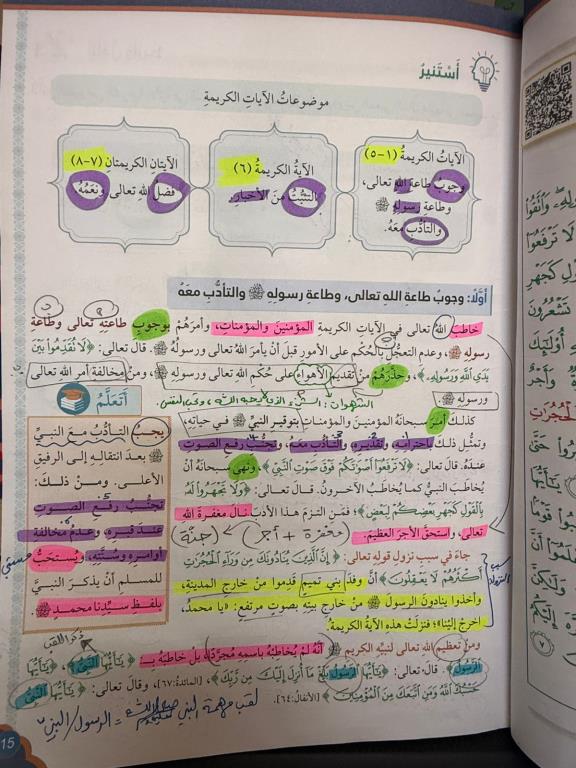 أَسْتَنيرُ
موضوعاتُ الآياتِ الكريمةِ
الآياتُ الكريمةُ (١-٥)
وجوبُ طاعةِ اللهِ تعالى،
وطاعةِ رسولِهِ ﷺ
والتأدُّبِ معَهُ.
الآيةُ الكريمةُ (٦)
التثبُّتُ منَ الأخبارِ.
الآيتانِ الكريمتانِ (٧-٨)
فضلُ اللهِ تعالى ونعَمُهُ.
أوَّلًا: وجوبُ طاعةِ اللهِ تعالى، وطاعةِ رسولِهِ ﷺ والتأدُّبِ معَهُ
خاطبَ اللهُ تعالى في الآياتِ الكريمةِ المؤمنينَ والمؤمناتِ، وأمرَهُمْ بوجوبِ طاعتِهِ تعالى وطاعةِ
رسولِهِ ﷺ، وعدمِ التعجُّلِ بالحُكمِ على الأمورِ قبلَ أنْ يأمرَ اللهُ تعالى ورسولُهُ ﷺ. قال تعالى: ﴿لَا تُقَدِّمُوا۟ بَيْنَ
يَدَيِ ٱللَّهِ وَرَسُولِهِۦ﴾، وحذَّرَهُمْ منْ تقديمِ الأهواءِ على حُكمِ اللهِ تعالى ورسولِهِ ﷺ، ومنْ مخالفةِ أمرِ اللهِ تعالى
ورسولِهِ ﷺ.
كذلكَ أمرَ سبحانَهُ المؤمنينَ والمؤمناتِ بتوقيرِ النبيِّ ﷺ في حياتِهِ،
وتمثَّلَ ذلكَ باحترامِهِ، وتقديرِهِ، والتأدُّبِ معَهُ، وتجنُّبِ رفعِ الصوتِ
عندَهُ. قال تعالى: ﴿لَا تَرْفَعُوٓا۟ أَصْوَٰتَكُمْ فَوْقَ صَوْتِ ٱلنَّبِيِّ﴾، ونهى سبحانَهُ أنْ
يُخاطَبَ النبيُّ كما يُخاطَبُ الآخرونَ. قال تعالى: ﴿وَلَا تَجْهَرُوا۟ لَهُۥ
بِٱلْقَوْلِ كَجَهْرِ بَعْضِكُمْ لِبَعْضٍ﴾؛ فمَنِ التزمَ هذا الأدبَ نالَ مغفرةَ اللهِ
تعالى، واستحقَّ الأجرَ العظيمَ.
مغفرة + أجر
جاءَ في سببِ نزولِ قولِهِ تعالى: ﴿إِنَّ ٱلَّذِينَ يُنَادُونَكَ مِن وَرَآءِ ٱلْحُجُرَٰتِ
أَكْثَرُهُمْ لَا يَعْقِلُونَ﴾ أنَّ وفدَ بني تميمٍ قَدِموا منْ خارجِ المدينةِ،
وأخذوا ينادونَ الرسولَ ﷺ منْ خارجِ بيتِهِ بصوتٍ مرتفعٍ: «يا محمدُ،
اخرجْ إلينا»؛ فنزلَتْ هذهِ الآيةُ الكريمةُ.
سبب النزول
ومنْ تعظيمِ اللهِ تعالى لنبيِّهِ الكريمِ ﷺ أنَّهُ لمْ يُخاطِبْهُ باسمِهِ مُجرَّدًا، بلْ خاطبَهُ بـِ ﴿يَٰٓأَيُّهَا ٱلنَّبِيُّ﴾، ﴿يَٰٓأَيُّهَا
ٱلرَّسُولُ﴾. قالَ تعالى: ﴿يَٰٓأَيُّهَا ٱلرَّسُولُ بَلِّغْ مَآ أُنزِلَ إِلَيْكَ مِن رَّبِّكَ﴾ [المائدة: ٦٧]، وقال تعالى: ﴿يَٰٓأَيُّهَا ٱلنَّبِيُّ
حَسْبُكَ ٱللَّهُ وَمَنِ ٱتَّبَعَكَ مِنَ ٱلْمُؤْمِنِينَ﴾ [الأنفال: ٦٤].
أَتَعَلَّمُ
يجبُ التأدُّبُ معَ النبيِّ
ﷺ بعدَ انتقالِهِ إلى الرفيقِ
الأعلى. ومنْ ذلكَ:
تجنُّبُ رفعِ الصوتِ
عندَ قبرِهِ، وعدمُ مخالفةِ
أوامرِهِ وسُنَّتِهِ، ويُستحَبُّ
للمسلمِ أنْ يذكرَ النبيَّ
بلفظِ سيِّدِنا محمدٍ ﷺ.
ذكر اللقب
15